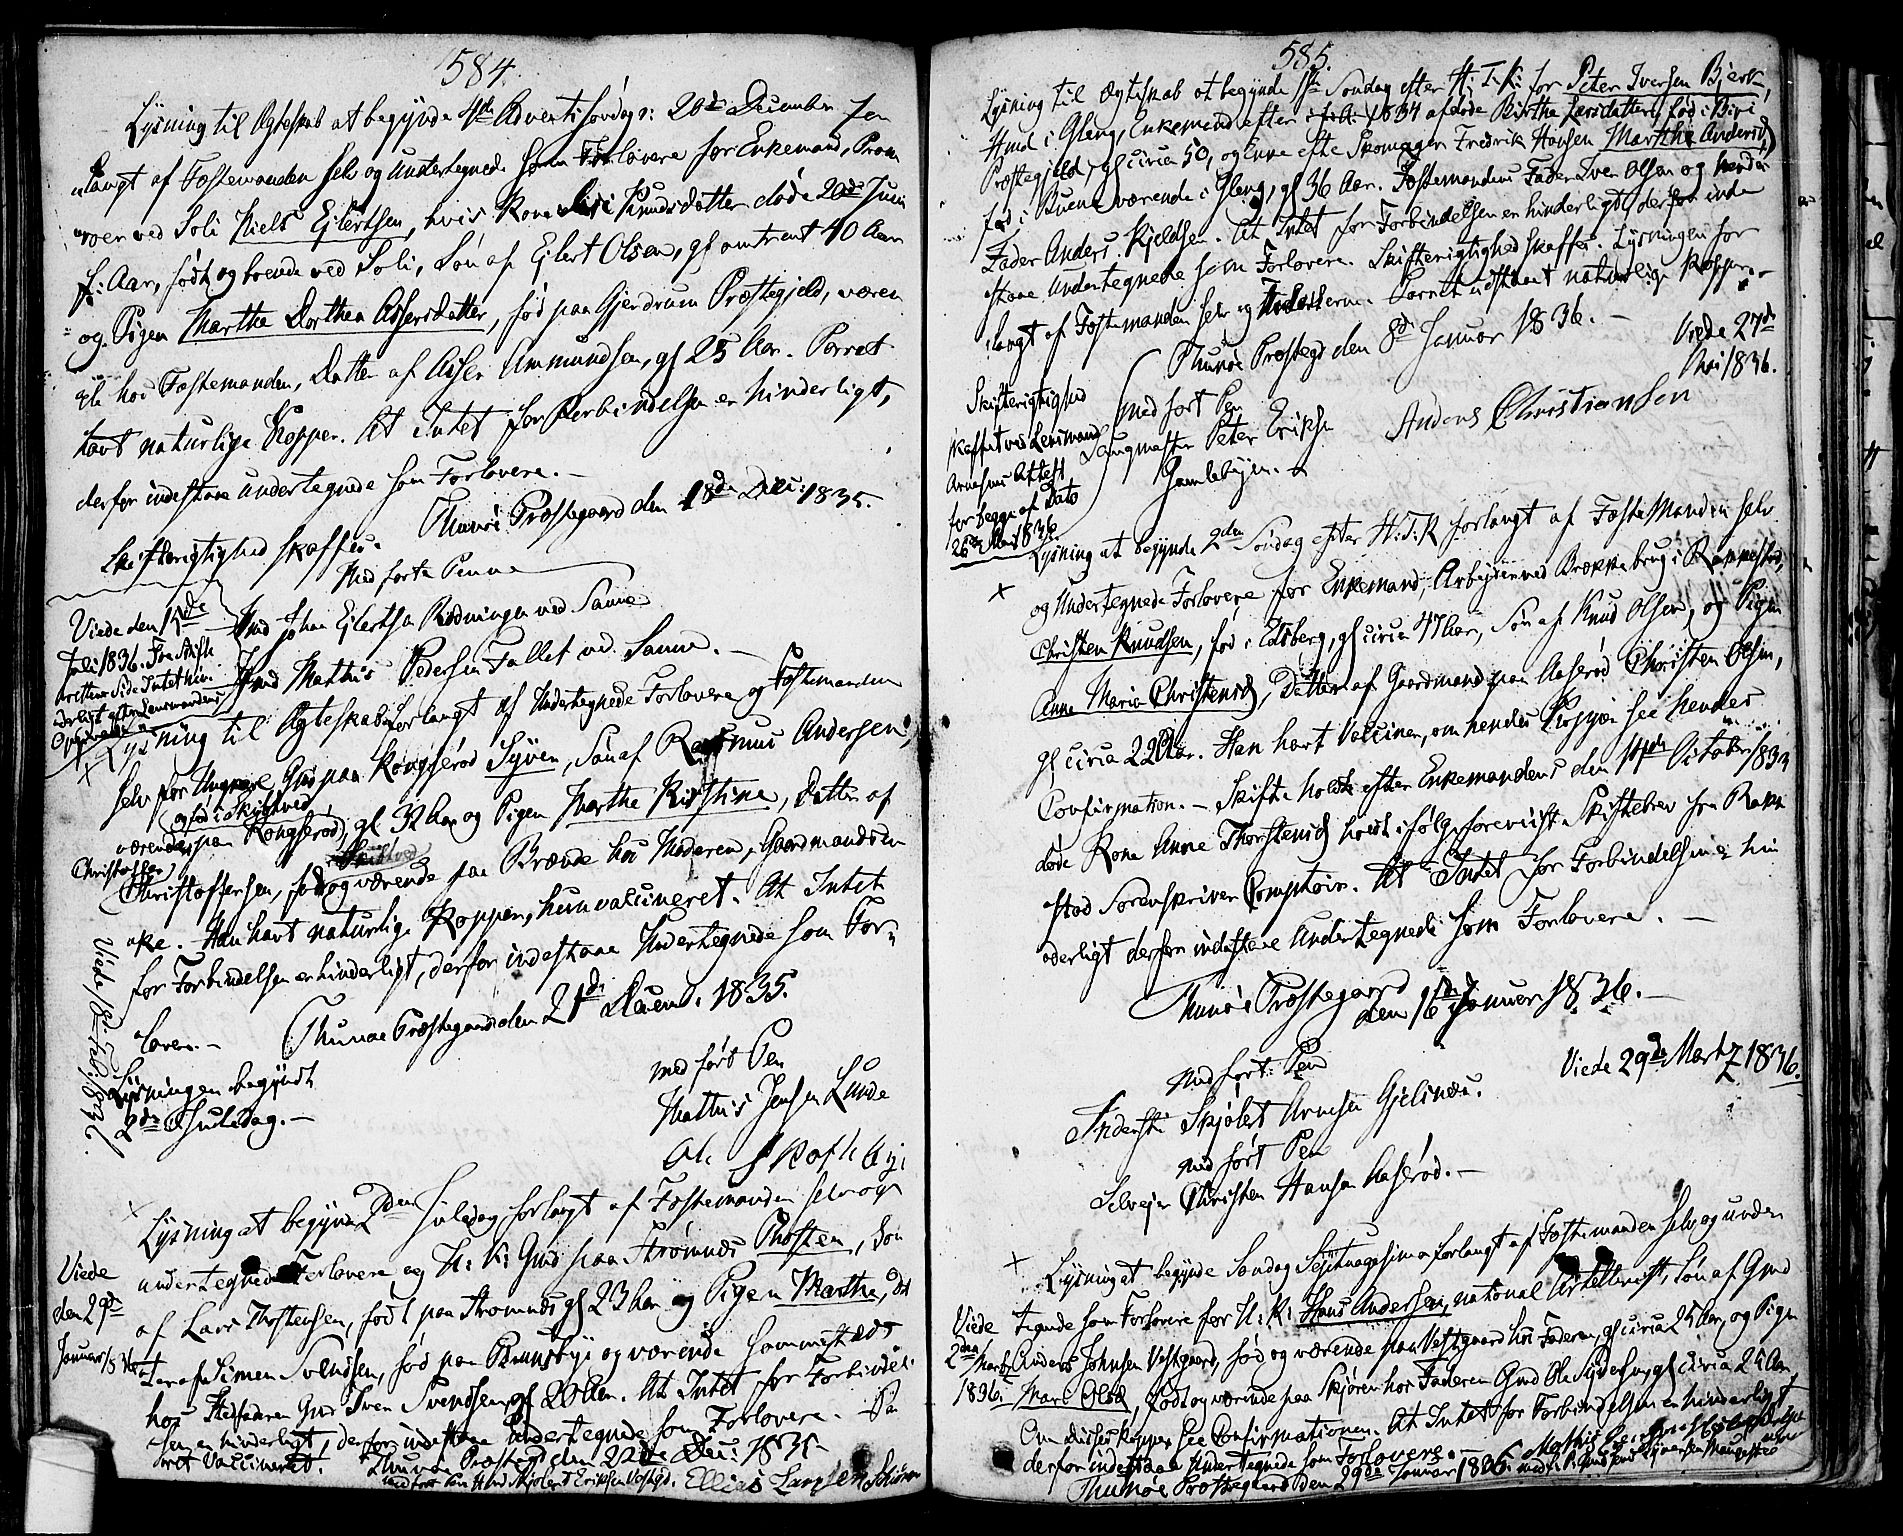 584.
Lysning til Ægteskab at begynde 4de Advents Søndag : 20de December for
langt af Fæstemanden selv og undertegnede som Forlovere for Enkemand,
ved Soli Niels Ejlertsen, hvis Kone Siri Knudsdatter døde 20de Juni
f: Aar, født og boende ved Soli, Søn af Ejlert Olsen, gl omtrent 40 Aar
og Pigen Marthe Dorthea Assersdatter, fød paa Gjerdrum Præstegjeld, væren
de hos Fæstemanden, Datter af Asser Ammundsen, gl 25 Aar. Parret
havt naturlige Kopper. At Intet for Forbindelsen er hinderligt,
derfor indestaae undertegnede som Forlovere.
Skifterigtighed skaffes. Thunøe Præstegaard den 18de Dec: 1835.
Med ført Penne
Viede den 15de
Juli 1836.
Hmd Johan Ejlertsen Rødningen ved Sanne
Hmd Mathis Pedersen Fallet ved Sanne.
Lysning til Ægteskab forlangt af Undertegnede Forlovere og Fæstemanden
selv for Ungkarl, Gmd paa Kongsrød Syver, Søn af Rasmus Andersen,
og fød i Skibtved
værende paa Kongsrød, gl 32 Aar og Pigen Marthe Kirstine, Datter af
Christoffer
Christoffersen, fød og værende paa Brænde hos Moderen, Gaardmandsen
ke. Han havt naturlige Kopper, hun vaccineret. At Intet
for Forbindelsen er hinderligt, derfor indestaae Undertegnede som For-
lovere. Thunøe Præstegaard den 21de Decemb: 1835.
Viede 18de Feb: 1836.
Lysningen begyndt
2den Juledag.
med ført Pen
Mathis Jensen Lunde
Ole Skofteby
Lysning at begynde 2den Juledag forlangt af Fæstemanden selv og
undertegnede Forlovere og U: K: Gmd paa Strømnæs Thosten, Søn
Viede
den 29de
Januar 1836
af Lars Thostensen, født paa Strømnæs gl 23 Aar og Pigen Marthe, Dat
ter af Simen Svendsen, fød paa og værende
hos Stedfaderen Gmd Sven Svendsen, gl 20 Aar. At Intet for Forbindel
sen er hinderligt, derfor indestaae undertegnede som Forlovere.
ret Vaccineret. Thunøe Præstegd den 22de Dec: 1835
med ført Pen Hmd Skjølert Eriksen Ellias Larsen
585.
Lysning til Ægteskab at begynde 1ste Søndag efter H: T: K: for Peter Iversen Bjerk,
Hmd i Gleng, Enkemand efter i 1834 afdøde Birthe Larsdatter, fød i Biri
Præstegjeld, gl circa 50, og Enke efter Skomager Fredrik Hansen Marthe Andersd,
fød i værende i Gleng, gl 36 Aar. Fæstemandens Fader Iver Olsen og hendes
Fader Anders Kjeldsen. At Intet for Forbindelsen er hinderligt, derfor inde
staae Undertegnede som Forlovere. Skifterigtighed skaffes. Lysningen for
langt af Fæstemanden selv og Forloverne. Parret udstaaet naturlige Kopper.
Thunøe Præstegd den 8de Januar 1836.
Viede 27de
Mai 1836.
Skifterigtighed
skaffet ved Lensmand
Arnesens Attest
for begge af Dato
26de Mai 1836.
med ført Pen
Laugmester Peter Eriksen
Gamlebyen.
Anders Christiansen
Lysning at begynde 2den Søndag efter H: T: K forlangt af FæsteManden selv
og Undertegnede Forlovere for Enkemand, Arbejder ved Brække brug i Rakkestad,
Christen Knudsen, fød i Edsberg, gl circa 47 Aar, Søn af Knud Olsen, og Pigen
Anne Maria Christensd, Datter af Gaardmand paa Aaserød Christen Olsen,
gl circa 22 Aar. Han havt Vacciner, om hendes Kopper see hendes
Confirmation. Skifte holdt efter Enkemandens den 14de October 1833
døde Kone Anne Thorstensd holdt ifølge foreviist Skiftebrev fra Rakke
stad Sorenskriver Comptoir. At Intet for Forbindelsen er hin
derligt derfor indestaae Undertegnede som Forlovere.
Thunøe Præstegaard
den 16de Januar 1836.
Viede 29de Martz 1836.
Med ført: Pen
Skjølert Arnesen
med ført Pen
Selvejer Christen Hansen Aaserød.
Lysning at begynde Søndag Septuagesima forlangt af Fæstemanden selv og under
tegnede som Forlovere for U: K: Hans Andersen, national Artillerist, Søn af Gmd
Viede
2den Marts
1836.
Anders Johnsen Vestgaard, fød og værende paa Vestgaard hos Faderen, gl circa 25 Aar, og Pigen
Mari Olsd, født og værende paa Skjøren hos Faderen Gmd Ole gl circa 24 Aar
Om disses Kopper see Confirmationen. At Intet for Forbindelsen er hinderligt
derfor indestaae Undertegnede som Forlovere.
Thunøe Præstegaard den 29de Januar 1836